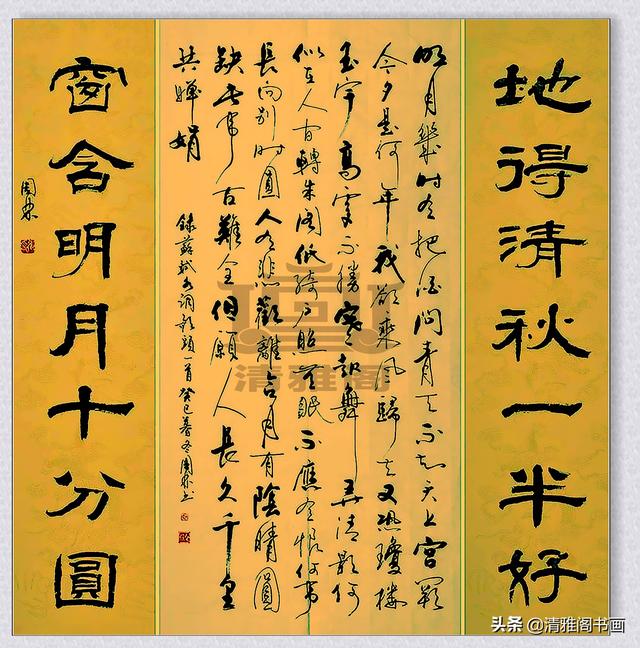 地得清秋一半好
明月幾時有把酒問青天不知天上宮闕
今夕是何年我欲乘風歸去又恐瓊樓
玉宇高處不勝寒起舞弄清影何
似在人間轉朱阁低綺户照無眠不應有恨何事
長向别時圓人有悲歡離合月有陰晴圓
缺此事古難全但願人長久千里
共嬋娟
錄蘇軾水調歌頭一首癸巳暮冬周
窗含明月十分圓
周
清雅阁
头条 @清雅阁书画